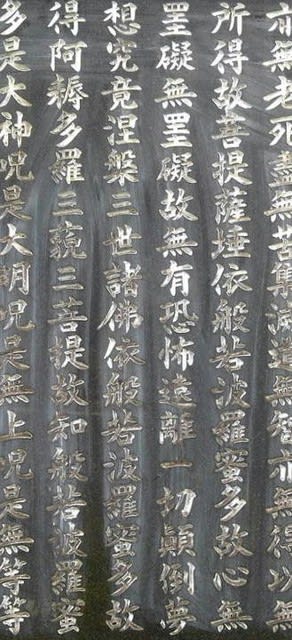 亦無老死盡無苦集滅道無智亦無得以無
所得故菩提薩埵依般若波羅蜜多故心無
罣礙無罣礙故無有恐怖遠離一切顛倒夢
想究竟涅槃三世諸佛依般若波羅蜜多故
得阿耨多羅三藐三菩提故知般若波羅蜜
多是大神呪是大明呪是無上呪是無等等